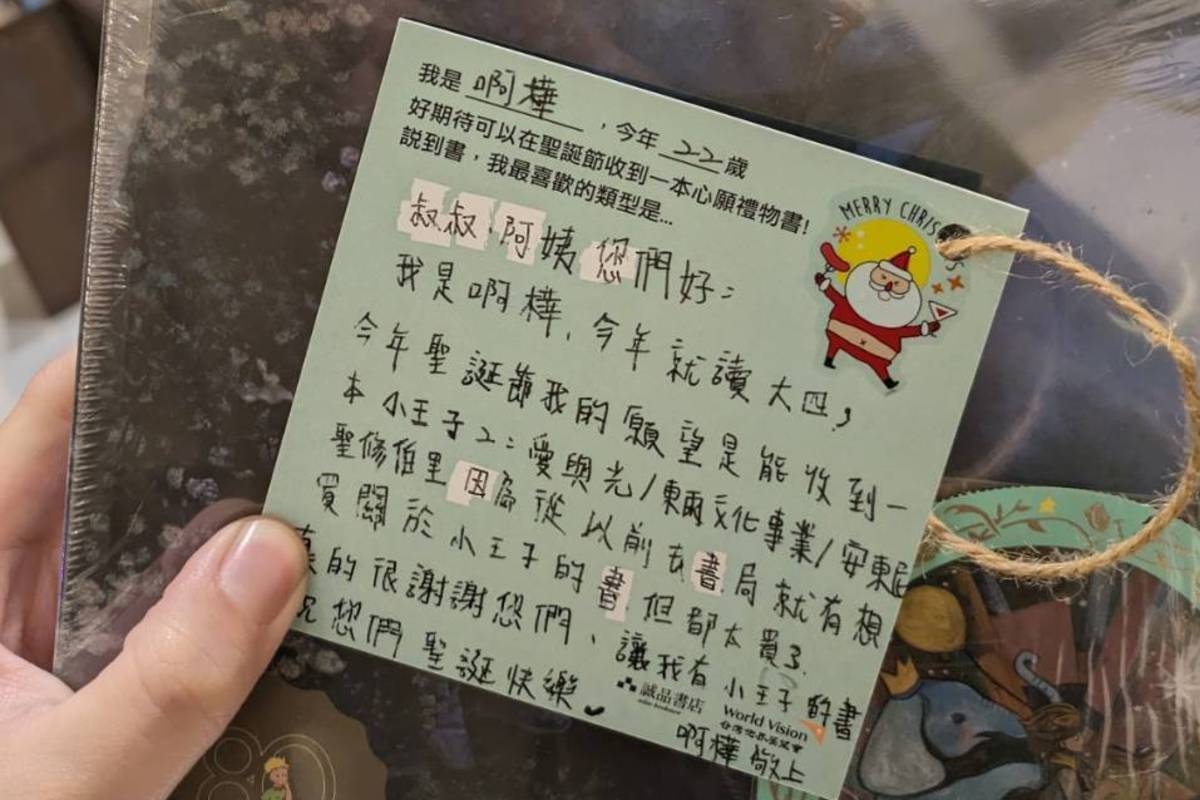 我是 啊樺 ,今年 22 歲
好期待可以在聖誕節收到一本心願禮物書!
説到書,我最喜歡的類型是...
MERRY CHRIS S
叔叔、阿姨您們好:
我是啊樺,今年就讀大四,
今年聖誕節我的願望是能收到一
本小王子2:愛與光/東崗文化事業/安東尼
聖修伯里 因為從以前去書局就有想
買關於小王子的書 但都太貴了.
的很謝謝您們、讓我有小王子的書
您們聖誕快樂
誠品書店
World Vision
啊樺 敬上